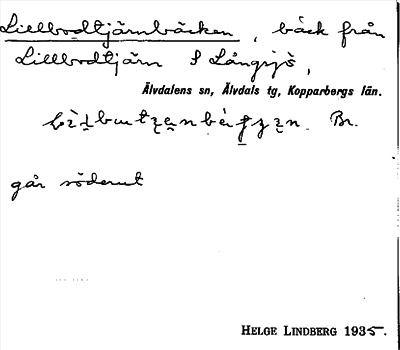 Lillbodtjärnbäcken, bäck från
Lillbodtjärn S Långsjö,
Älvdalens sn, Älvdals tg, Kopparbergs län.
Br.
går söderut
HELGE LINDBERG 1935.